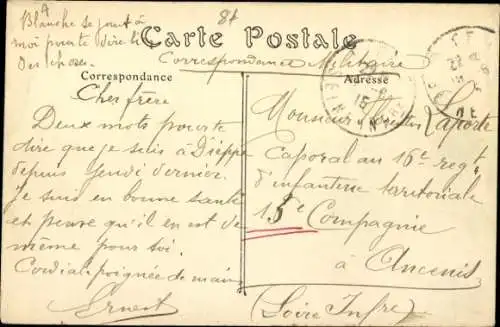 Blanche se joint à
moi pour te dire bien
des chose.
81
Carte Postale
Correspondance Militaire
Correspondance
Adresse
Cher frère
Deux mots pour te
dire que je suis à Dieppe
depuis jeudi dernier.
Je suis en bonne santé
et pense qu'il en est de
même pour toi.
Cordiale poignée de main
Ernest
Monsieur Laporte
Caporal au 16e regt
d'infanterie territoriale
15e Compagnie
à Ancenis
(Loire Infre)